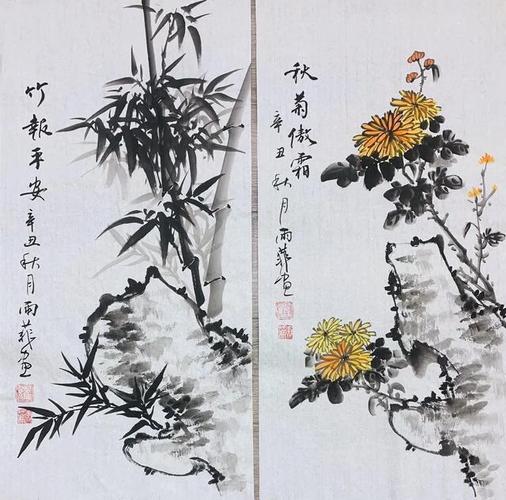 竹報平安
辛丑秋月雨菲画
秋菊傲霜
辛丑秋月雨菲画